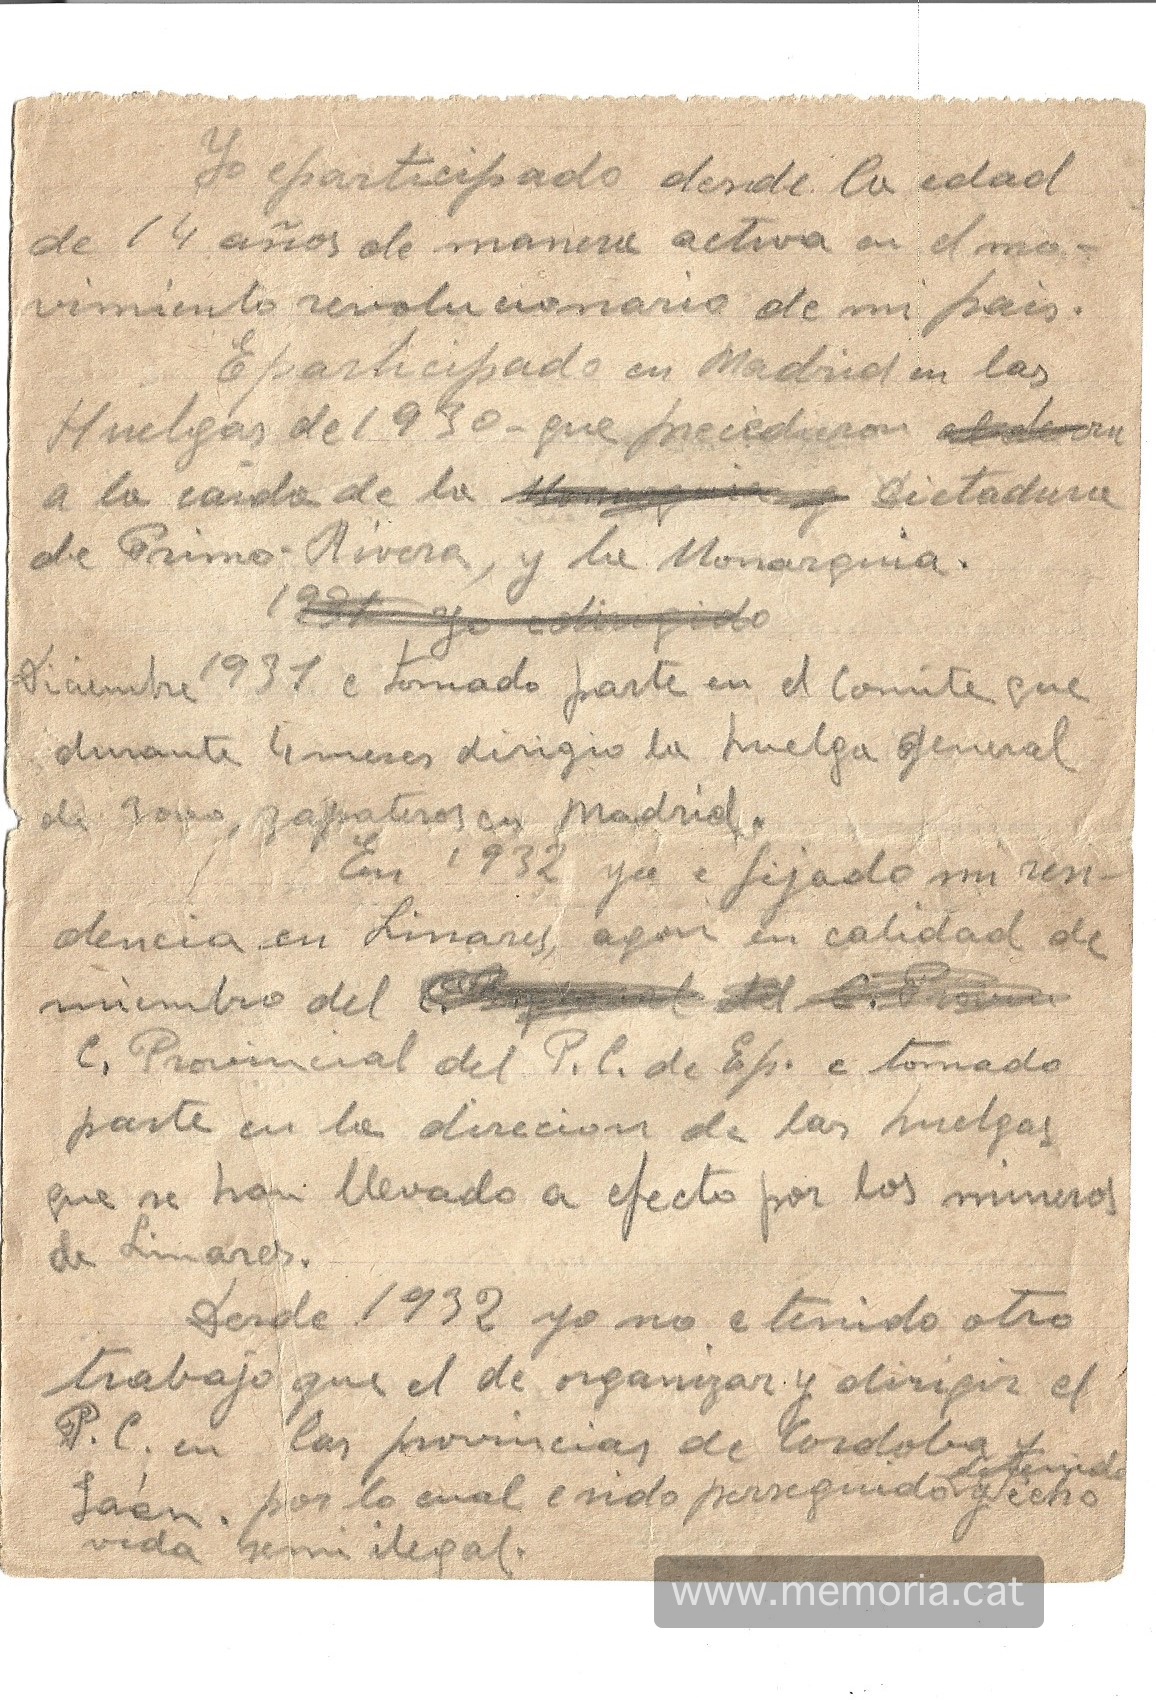 Yo eparticipado desde la edad
de 14 años de manera activa en el mo-
vimiento revolucionario de mi pais.
Eparticipado en Madrid en las
Huelgas de 1930 - que precedieron
a la caida de la Monarquia y Dictadura
de Primo-Rivera, y la Monarquia.
1931 Yo edirigido
Diciembre 1931 e tomado parte en el Comite que
durante 4 meses dirigio la huelga general
de 3000, zapateros en Madrid.
En 1932 yo e fijado mi resi-
dencia en Linares, en calidad de
miembro del C. Regional del C. Provin
C. Provincial del P.C. de Ep. e tomado
parte en la direcion de las huelgas
que se han llevado a efecto por los mineros
de Linares.
Desde 1932 yo no e tenido otro
trabajo que el de organizar y dirigir el
P.C. en las provincias de Cordoba y
Jaén. por lo cual e sido perseguido detenido y echo
vida semi ilegal.
www.memoria.cat